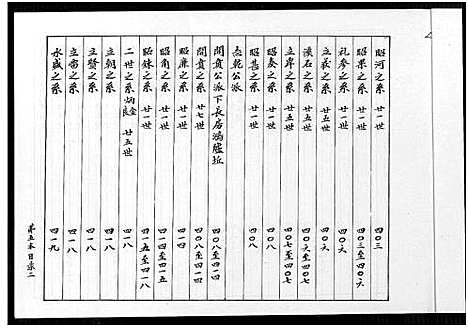 昭河之系 廿一世 四〇三
昭果之系 廿一世 四〇三至四〇六
礼参之系 廿一世 四〇六
立義之系 廿五世 四〇六
溪石之系 廿五世 四〇六
立岸之系 廿五世 四〇七至四〇七
昭奏之系 廿一世 四〇八
昭甚之系 廿一世 四〇八
志乾公派
開貴公派下長房馮墟坵
開貴之系 廿七世 四〇八至四一四
昭廉之系 廿一世 四一四
昭角之系 廿一世 四一四至四一五
昭銖之系 廿一世 四一五至四一八
二世之系 廿五世 四一八
立朝之系 四一八
立賢之系 四一八
立常之系 四一八
永盛之系 四一九
第五本目录二